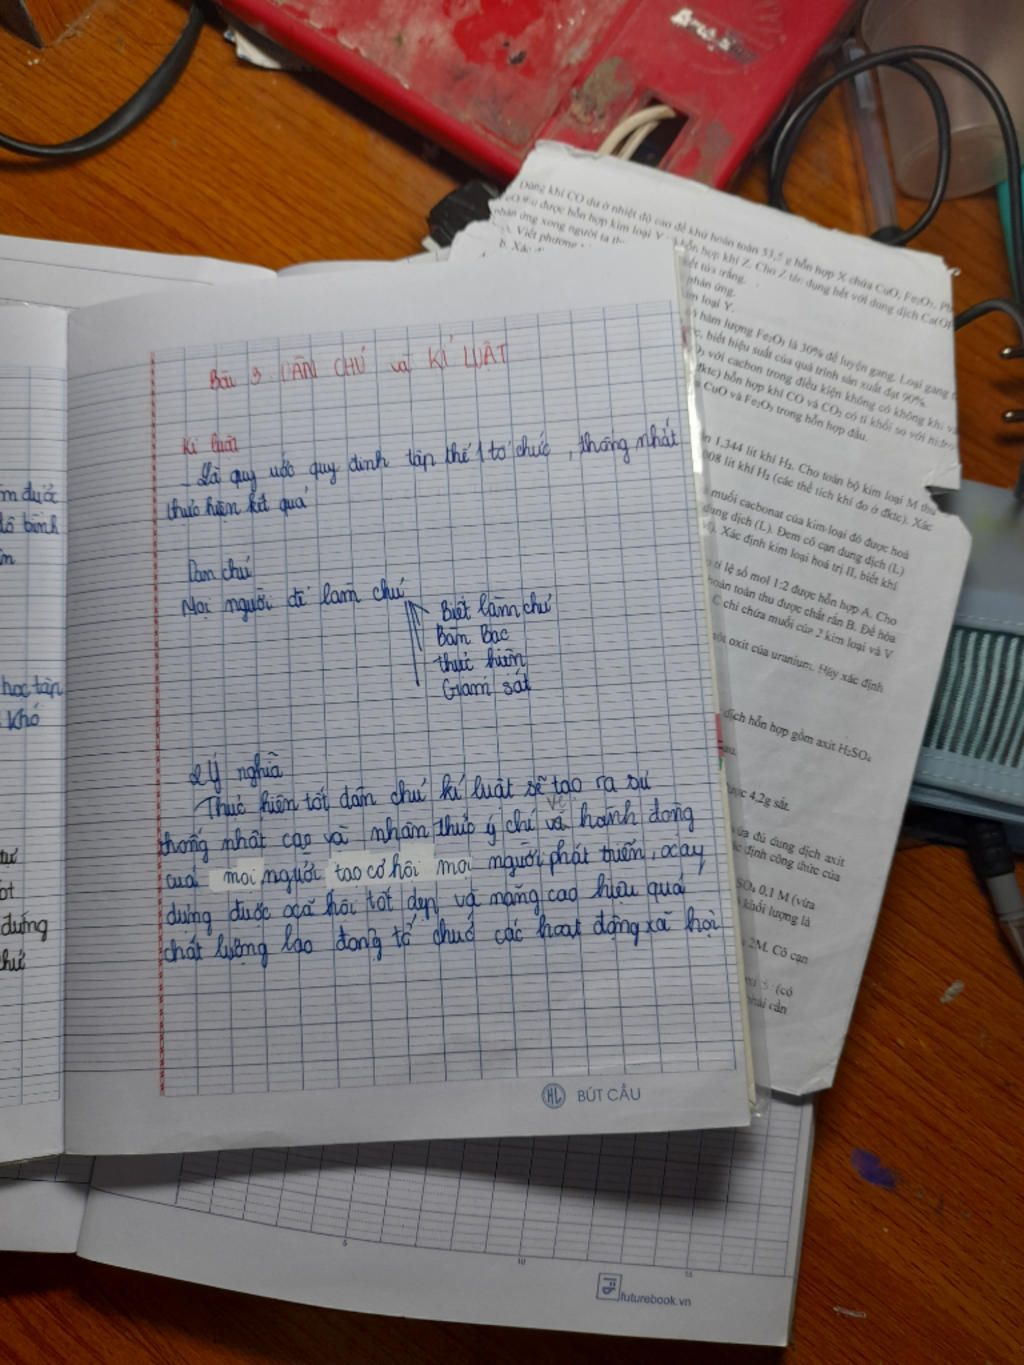 Bài 3. DÂN CHỦ và KỈ LUẬT
Kỉ luật
- Là quy ước quy định tập thể 1 tổ chức, thống nhất
thực hiện kết quả
Dân chủ
Mọi người để làm chủ
Biết làm chủ
Bàn Bạc
thực hiện
Giám sát
2 Ý nghĩa
Thực hiện tốt dân chủ kỉ luật sẽ tạo ra sự
về
thống nhất cao và nhận thức ý chí và hành động
của mọi người tạo cơ hội mọi người phát triển, xây
dựng được xã hội tốt đẹp và nâng cao hiệu quả
chất lượng lao động tổ chức các hoạt động xã hội
HL BÚT CẦU
học tập
Khó
đứng
Dùng khí CO dư ở nhiệt độ cao để khử hoàn toàn 53,5 g hỗn hợp X chứa CuO, Fe₂O₃,
thu được hỗn hợp kim loại Y hỗn hợp khí Z. Cho Z tác dụng hết với dung dịch Ca(OH
phản ứng xong người ta kết tủa trắng.
Viết phương phản ứng.
kim loại Y.
hàm lượng Fe₂O₃ là 30% để luyện gang. Loại gang
biết hiệu suất của quá trình sản xuất đạt 90%.
với cacbon trong điều kiện không có không khí
(đktc) hỗn hợp khí CO và CO₂ có tỉ khối so với hiđro
CuO và Fe₂O₃ trong hỗn hợp đầu.
1,344 lít khí H₂. Cho toàn bộ kim loại M thu
008 lít khí H₂ (các thể tích khí đo ở đktc). Xác
muối cacbonat của kim loại đó được hoà
dung dịch (L). Đem cô cạn dung dịch (L)
Xác định kim loại hoá trị II, biết khi
tỉ lệ số mol 1:2 được hỗn hợp A. Cho
hoàn toàn thu được chất rắn B. Để hòa
C chỉ chứa muối của 2 kim loại và V
một oxit của uranium. Hãy xác định
dịch hỗn hợp gồm axit H₂SO₄
được 4,2g sắt.
vừa đủ dung dịch axit
định công thức của
SO₄ 0,1 M (vừa
khối lượng là
2M. Cô cạn
(có
phải cần
5
10
15
futurebook.vn